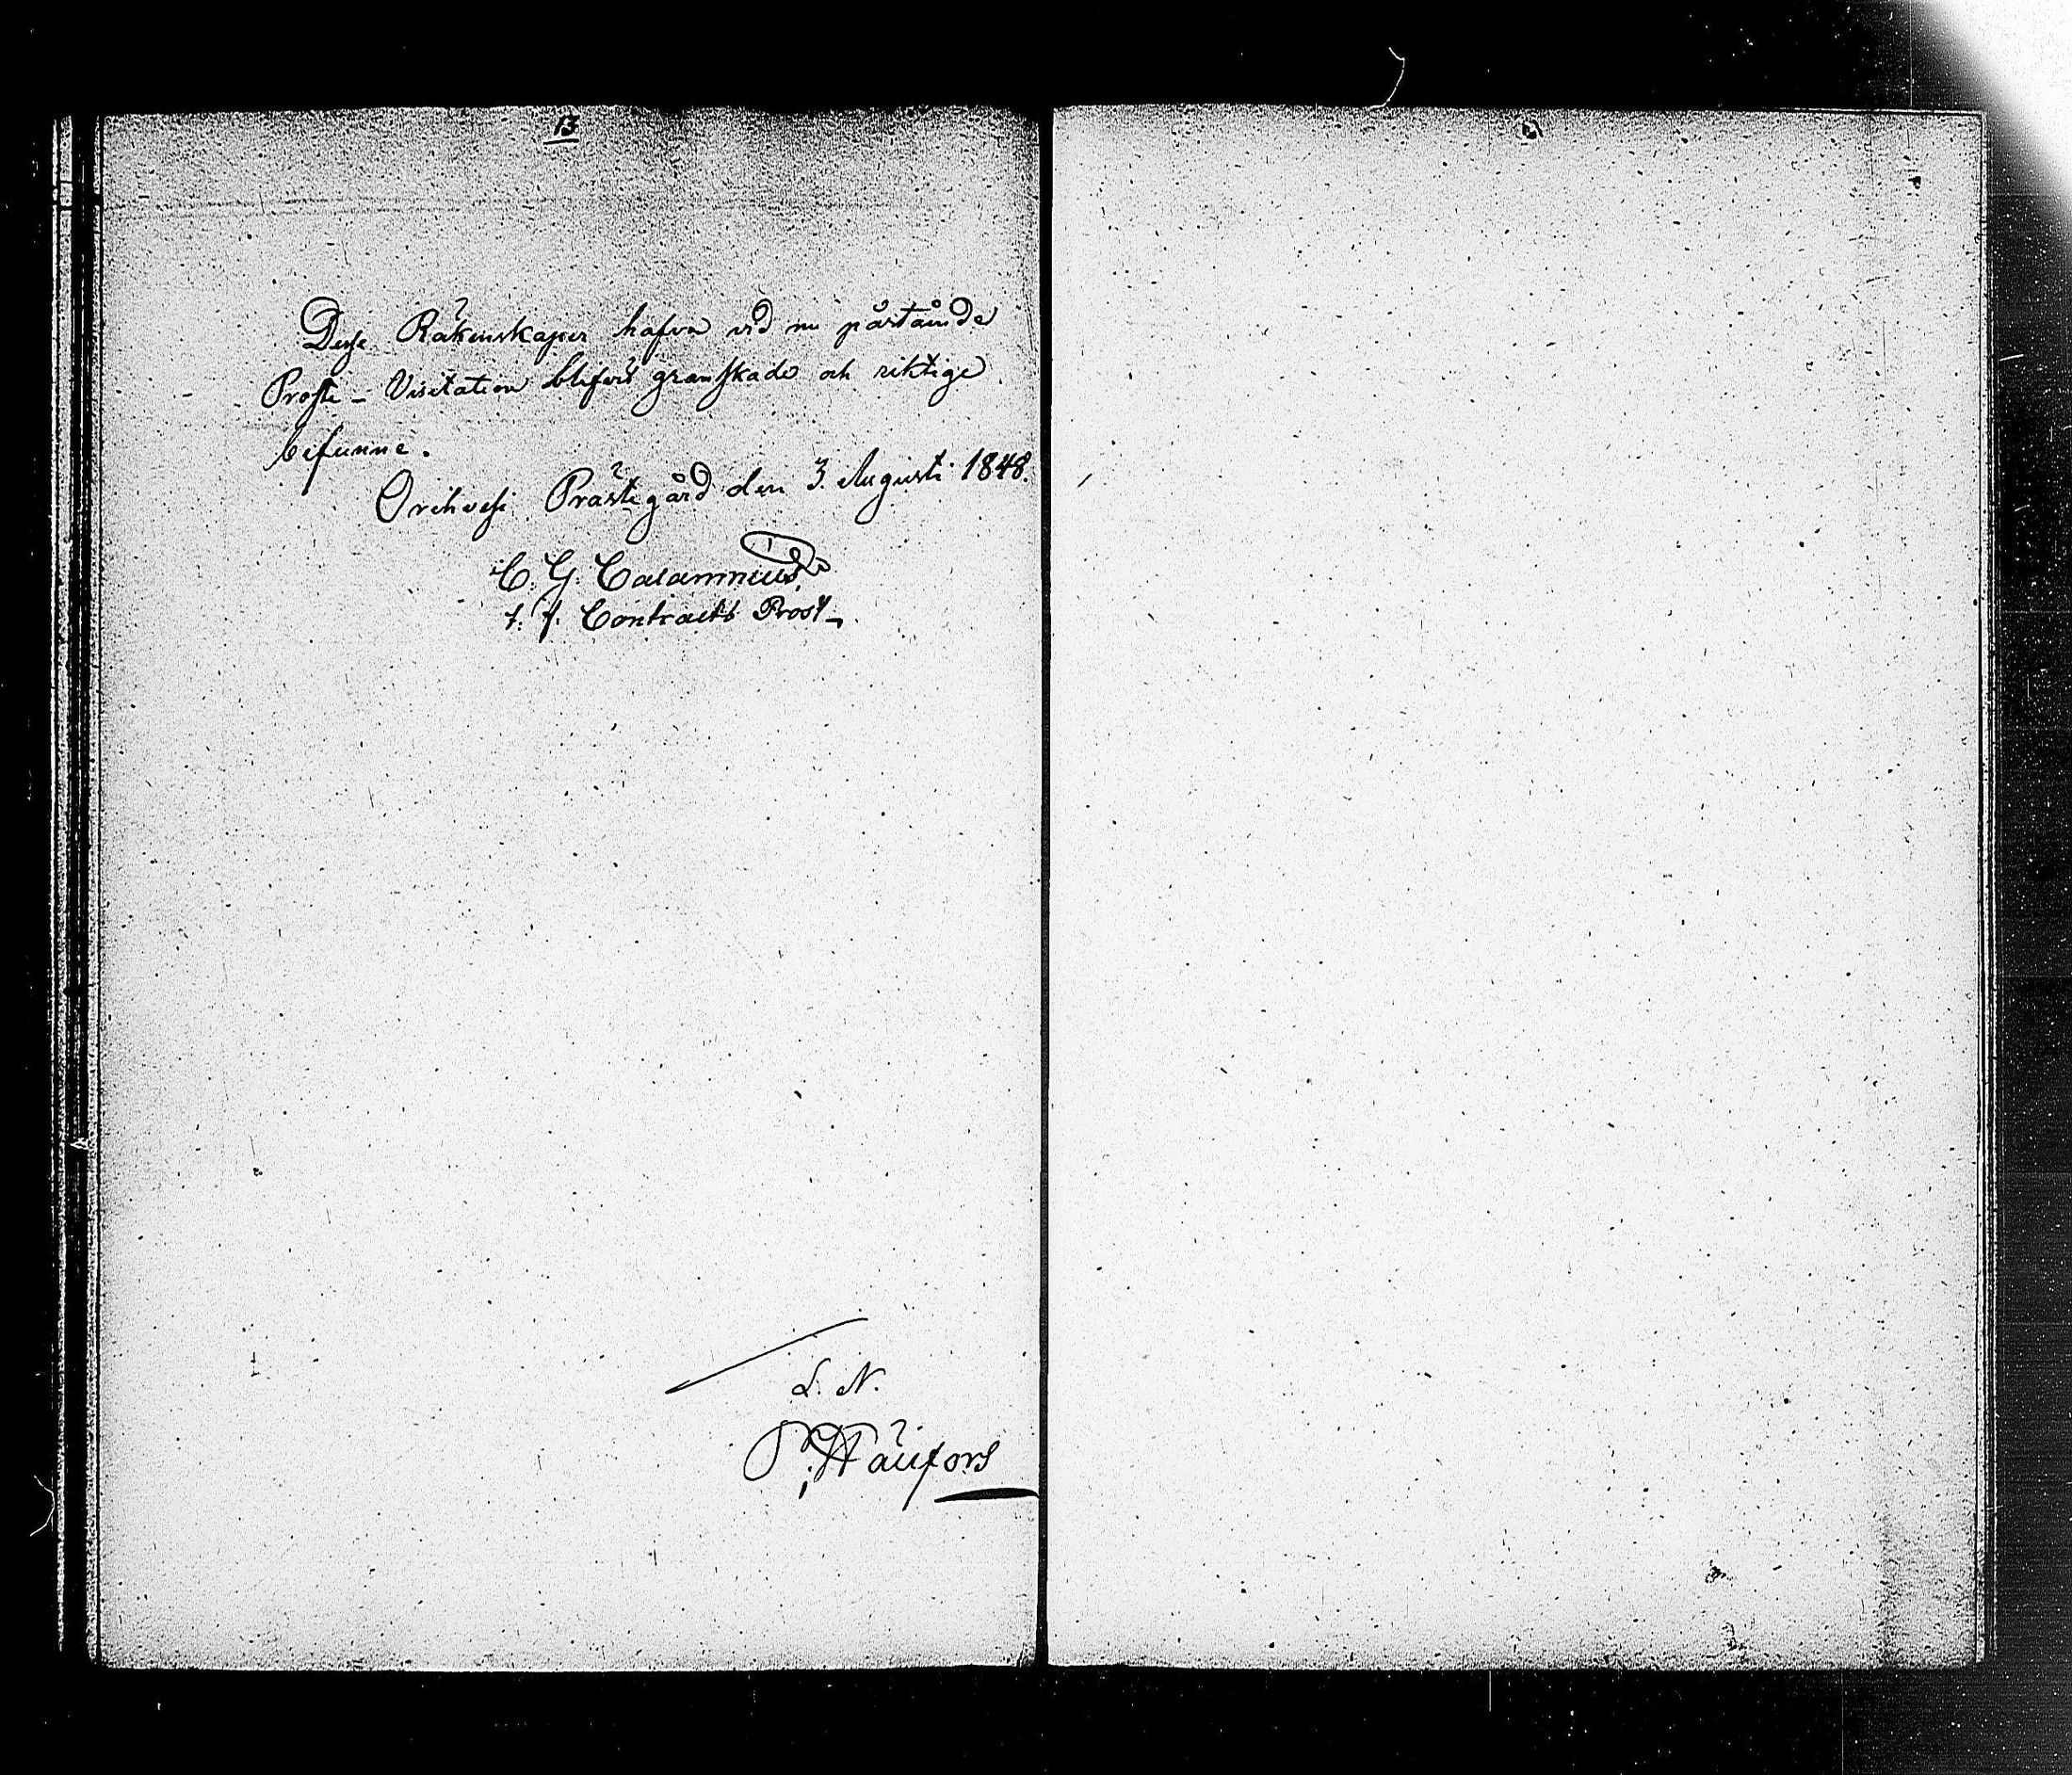 13
Desse Räkenskaper hafva vid nu påstående
Prosts-Visitation blifvit granskade och riktige
befunne.
Orihvesi Prästegård den 3. Augusti 1848.
C. G. Calamnius
t. f. Contracts Prost
L. N.